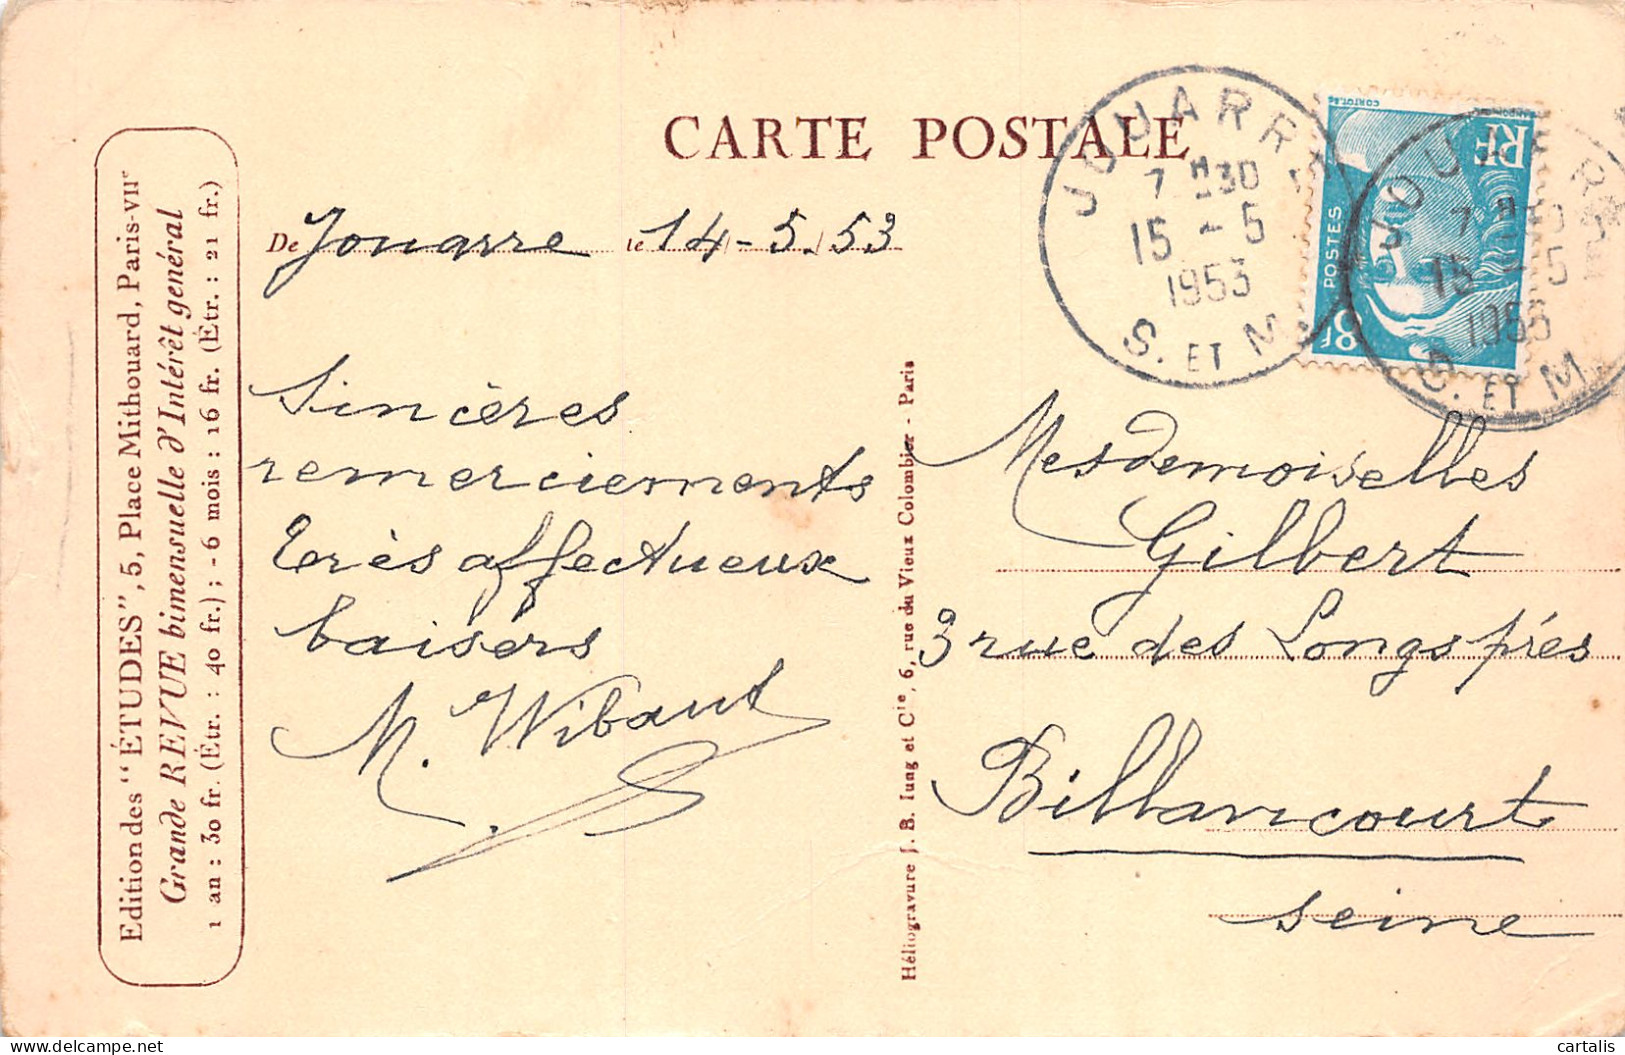 CARTE POSTALE
De Jouarre le 14-5.53
Sincères
remerciements
très affectueux
baisers
M. Wibaut
Mesdemoiselles
Gilbert
3 rue des Longs prés
Billancourt
seine
JOUARRE
7H30
15-5
1953
S. ET M.
JOUARRE
7H30
15-5
1953
S. ET M.
RF
POSTES
8F
CORTOT
Edition des "ÉTUDES", 5, Place Mithouard, Paris-VIIe
Grande REVUE bimensuelle d'Intérêt général
1 an : 30 fr. (Étr. : 40 fr.) ; - 6 mois : 16 fr. (Étr. : 21 fr.)
Héliogravure J. B. Iung et Cie, 6, rue du Vieux Colombier - Paris
delcampe.net
cartalis